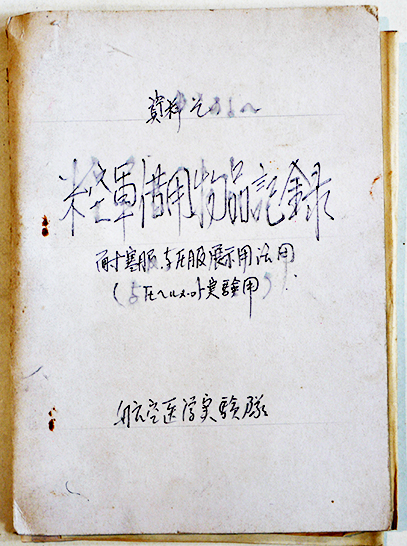 資料
米空軍借用物品記録
耐寒服、与圧服展示用法用
(与圧ヘルメット実験用)
航空医学実験隊